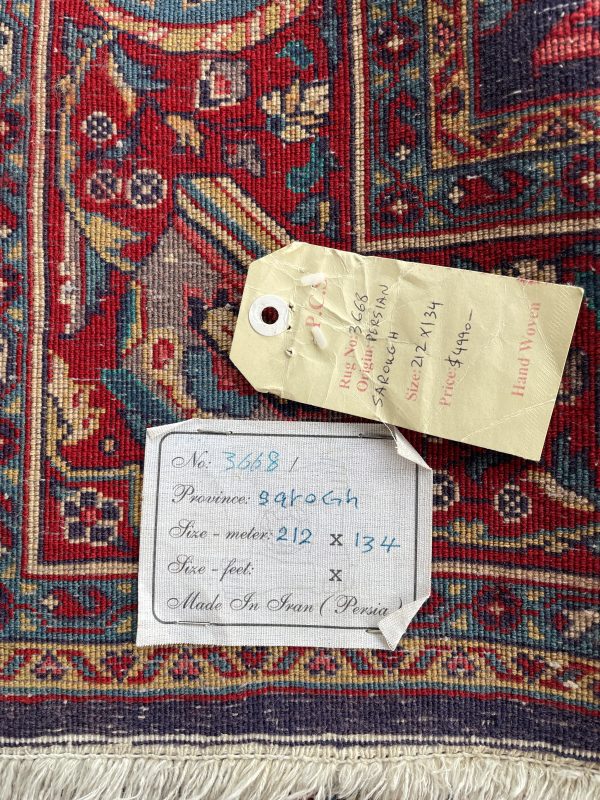 P.C.
Rug No: 3668
Origin: PERSIAN
SAROUGH
Size: 212 X 134
Price: $4990-
Hand Woven
No: 3668 /
Province: sarogh
Size - meter: 212 x 134
Size - feet: x
Made In Iran ( Persia )